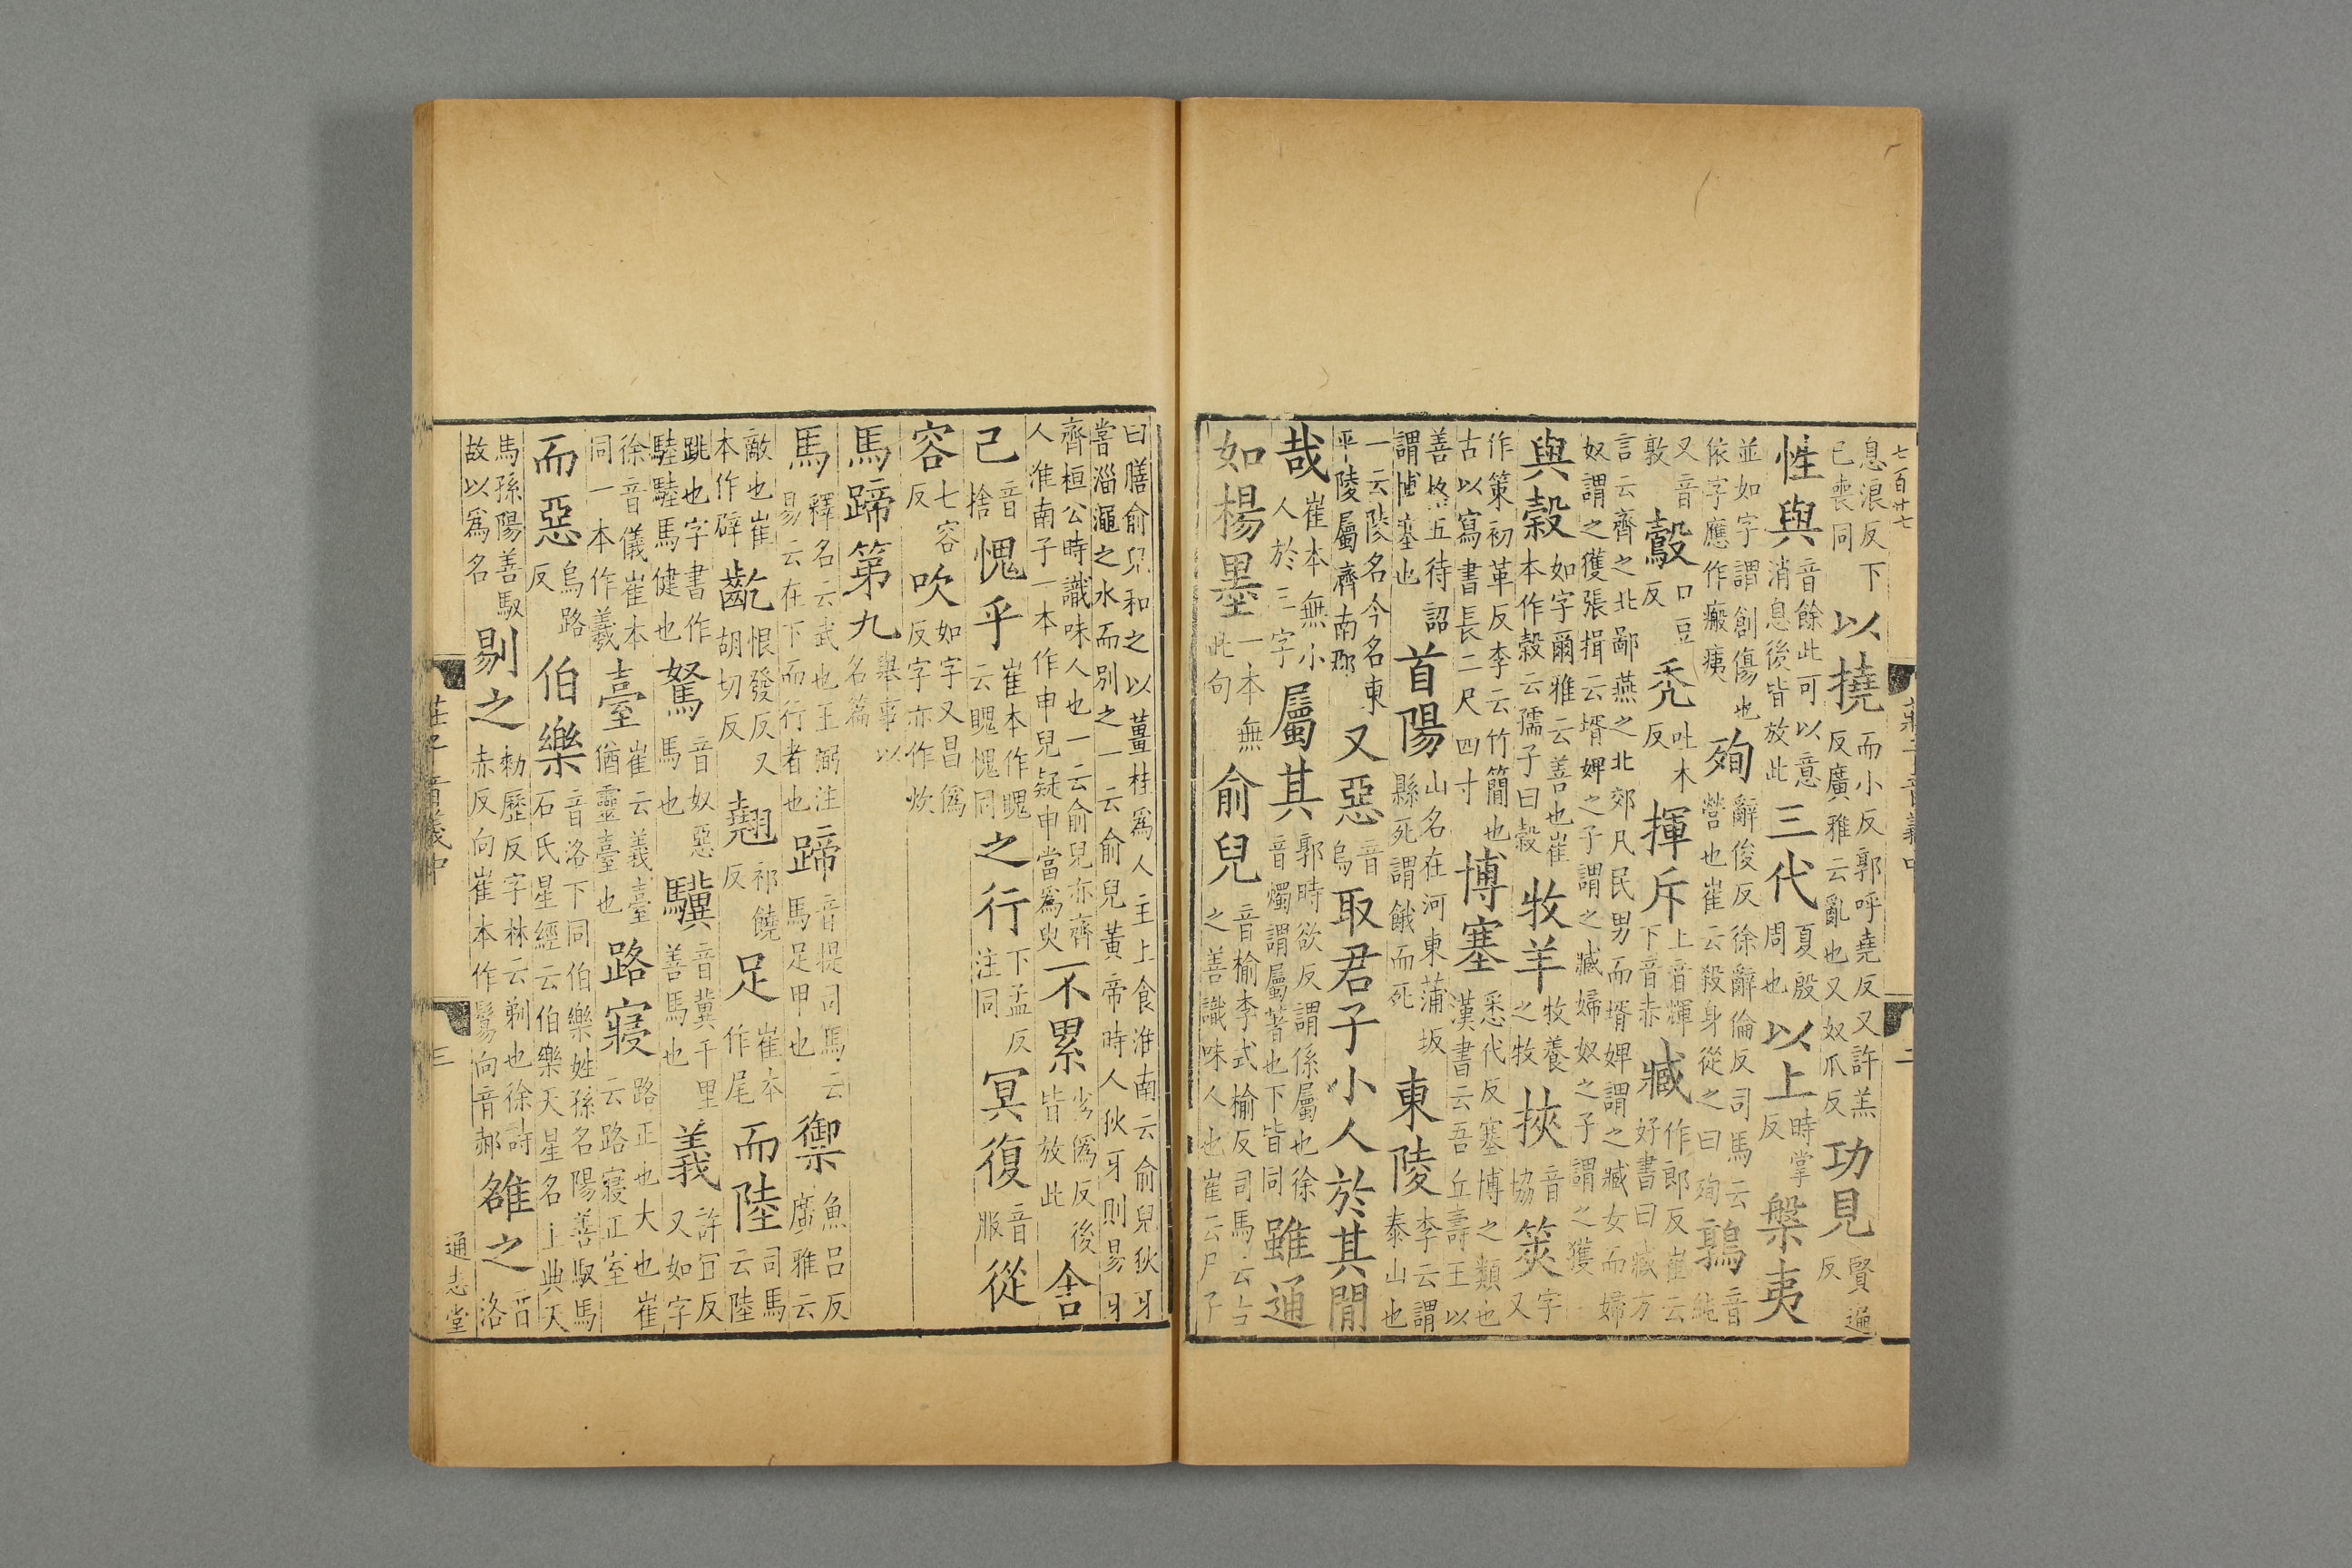 七百廿七
息浪反下已喪同 以撓 而小反郭呼堯反又許羔反廣雅云亂也又奴爪反 功見 賢遍反
性與 音餘此可以意消息後皆放此 三代 夏殷周也 以上 時掌反 槃夷
並如字謂創傷也依字應作瘢痍 殉 辭俊反徐辭倫反司馬云營也崔云殺身從之曰殉 鶉 音純
又音敦 鷇 口豆反 禿 吐木反 揮斥 上音輝下音赤 臧 作郎反崔云好書曰臧方
言云齊之北鄙燕之北郊凡民男而壻婢謂之臧女而婦奴謂之獲張揖云壻婢之子謂之臧婦奴之子謂之獲
與穀 如字爾雅云善也崔本作穀云孺子曰穀 牧羊 牧養之牧 挾 音協 筴 字又
作策初革反李云竹簡也古以寫書長二尺四寸 博塞 悉代反塞博之類也漢書云吾丘壽王以
善格五待詔謂博塞也 首陽 山名在河東蒲坂縣死謂餓而死 東陵 李云謂泰山也
一云陵名今名東平陵屬濟南郡 又惡 音烏 取君子小人於其閒
哉 崔本無小人於三字 屬其 郭時欲反謂係屬也徐音燭謂屬著也下皆同 雖通
如楊墨 一本無此句 俞兒 音榆李式榆反司馬云古之善識味人也崔云尸子
莊子音義中 二
曰膳俞兒和之以薑桂爲人主上食淮南云俞兒狄牙嘗淄澠之水而別之一云俞兒黃帝時人狄牙則易牙
齊桓公時識味人也一云俞兒亦齊人淮南子一本作申兒疑申當爲臾 不累 劣僞反後皆放此 舍
己 音捨 愧乎 崔本作聭云聭愧同 之行 下孟反注同 冥復 音服 從
容 七容反 吹 如字又昌僞反字亦作炊
馬蹄第九 舉事以名篇
馬 釋名云武也王弼注易云在下而行者也 蹄 音提司馬云馬足甲也 禦 魚呂反廣雅云
敵也崔本作辟 齕 恨發反又胡切反 翹 祁饒反 足 崔本作尾 而陸 司馬云陸
跳也字書作䮚䮚馬健也 駑 音奴惡馬也 驥 音冀千里善馬也 義 許宜反又如字
徐音儀崔本同一本作羲 臺 崔云義臺猶靈臺也 路寢 路正也大也崔云路寢正室
而惡 烏路反 伯樂 音洛下同伯樂姓孫名陽善馭馬石氏星經云伯樂天星名主典天
馬孫陽善馭故以爲名 剔之 勑歷反字林云剃也徐詩赤反向崔本作鬄向音郝 雒之 音洛
莊子音義中 三 通志堂